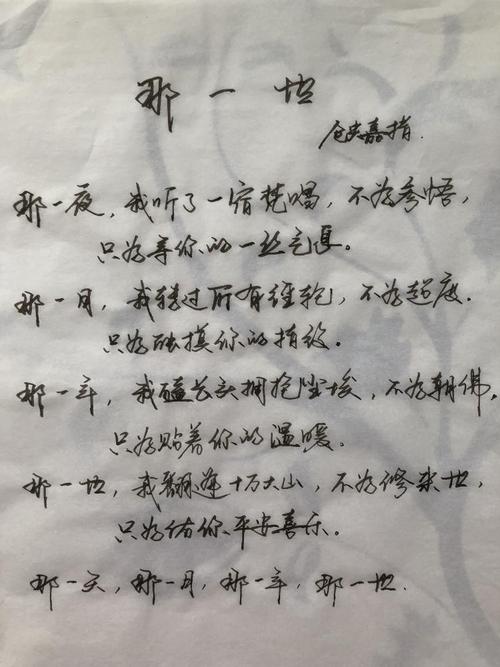 那一世
仓央嘉措.
那一夜，我听了一宿梵唱，不为参悟，
只为寻你的一丝气息。
那一月，我转过所有经轮，不为超度.
只为触摸你的指纹。
那一年，我磕长头拥抱尘埃，不为朝佛，
只为贴着你的温暖.
那一世，我翻遍十万大山，不为修来世，
只为佑你平安喜乐。
那一天，那一月，那一年，那一世.